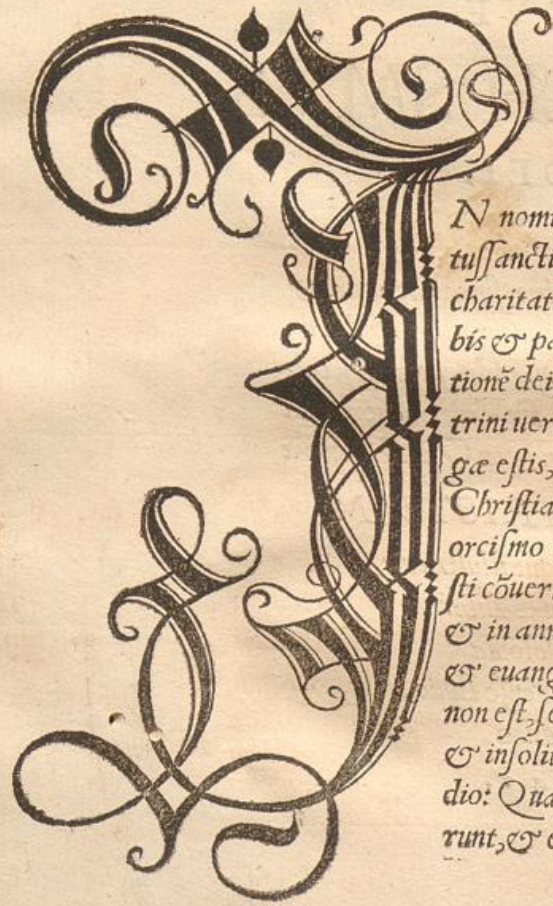 IN nomi
tussancti
charitat
bis & pa
tionē dei
trini uer
gæ estis,
Christia
orcismo
sti cōuer
& in ann
& euang
non est, se
& insolit
dio: Qua
runt, & c